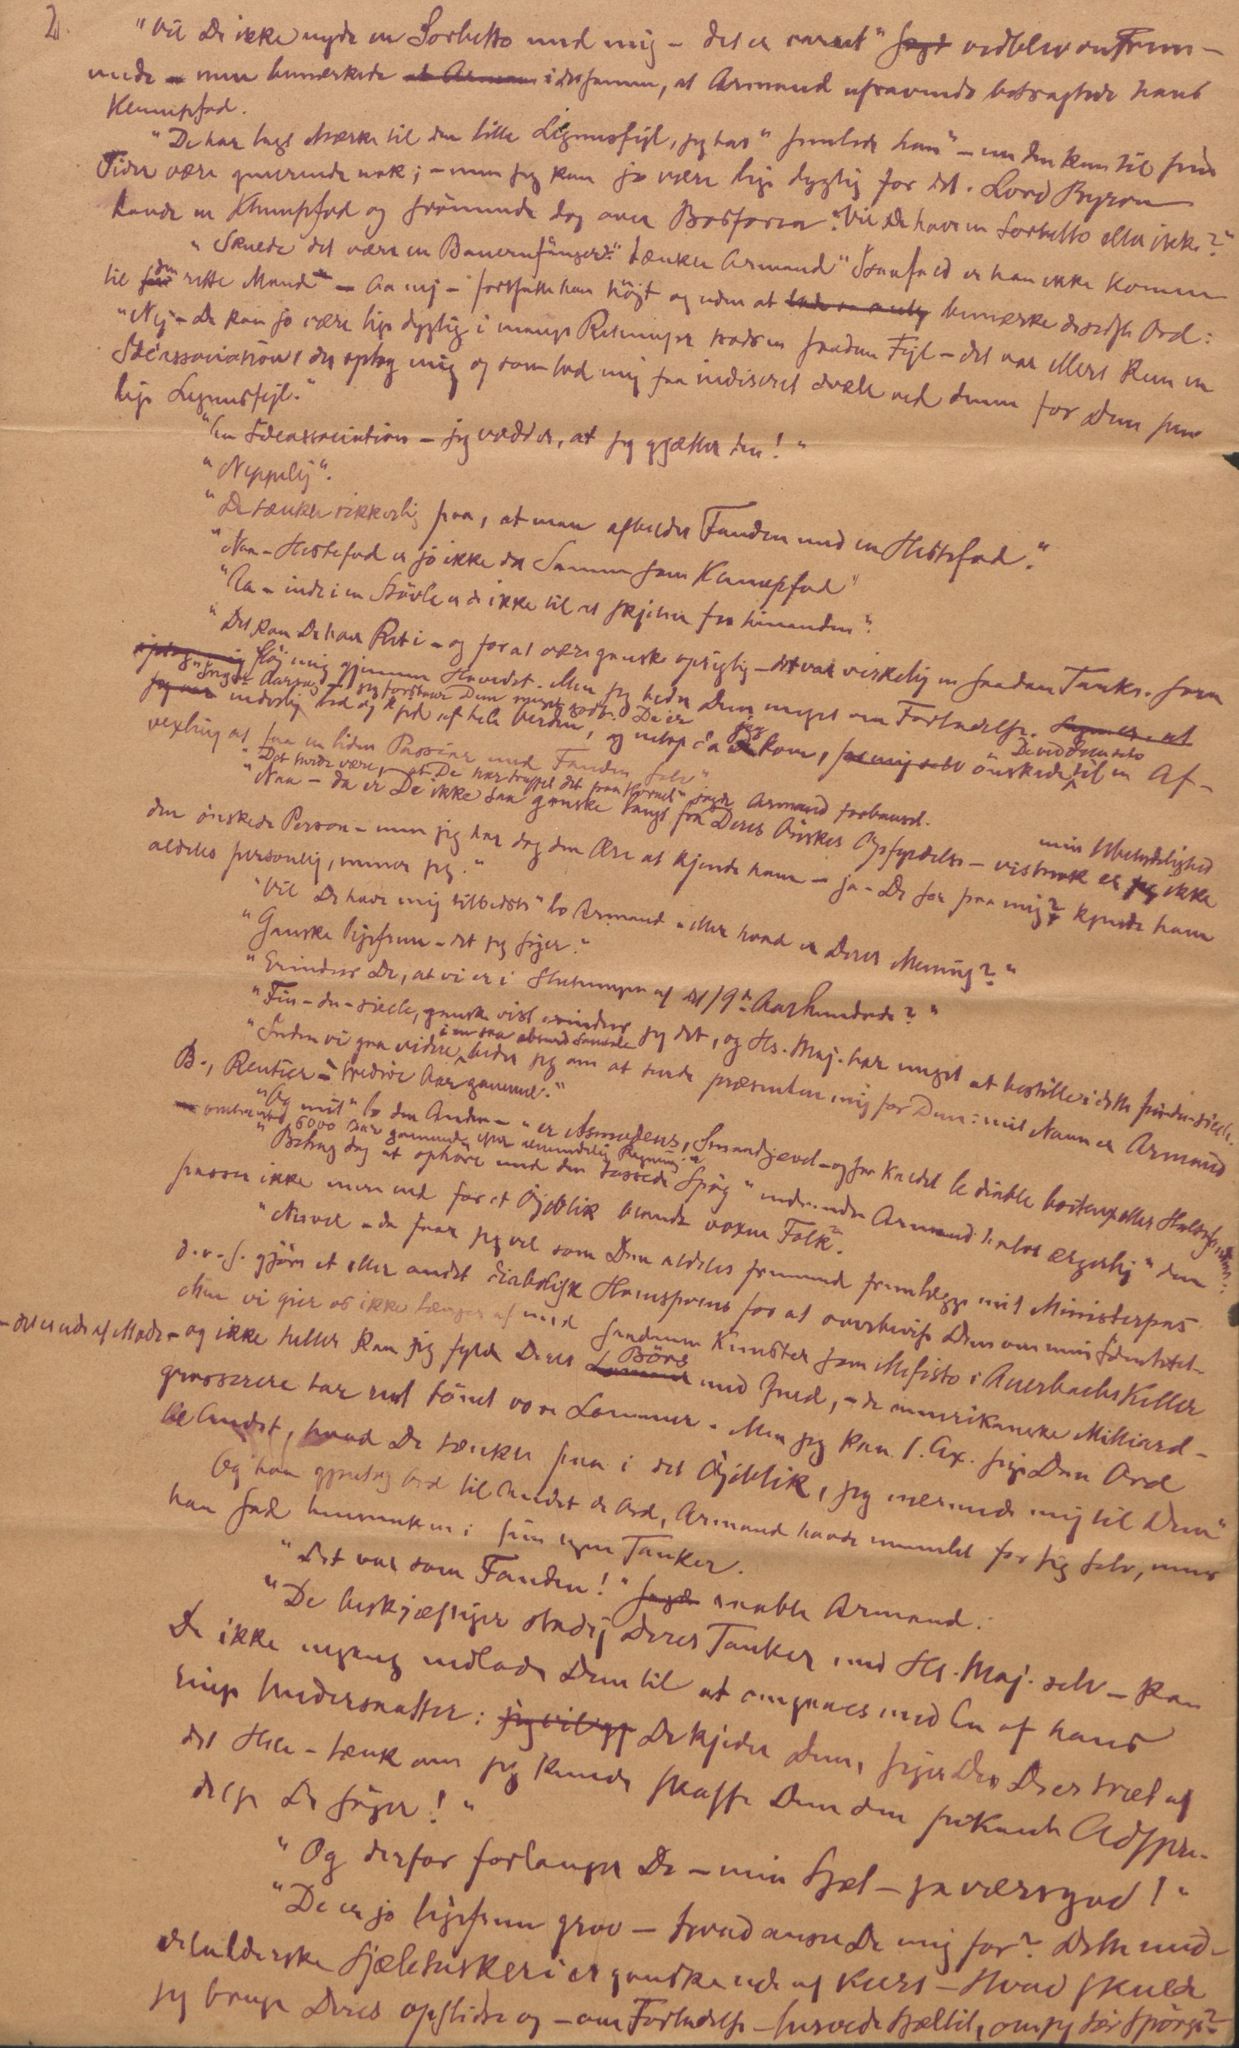 2.
"Vil De ikke nyde en Sorbetto med mig – det er varmt" sagt vedblev den Frem-
mede – men bemærkede at Armand i det samme, at Armand ufravendt betragtede hans
Klumpfod.
"De har lagt Mærke til den lille Legemsfejl, jeg har" han – "en den kan til sine
Tider være generende nok; – men jeg kan jo være lige dygtig for det. Lord Byron
havde en Klumpfod og svømmede dog over Bosforen. Vil De have en Sorbetto eller ikke?"
"Skulde det være en Bauernfänger?" tænker Armand "Isaafald er han ikke kommen
til den rette Mand" – Aa nej – fortsatte han højt og uden at bemærke disse Ord:
"Nej – De kan jo være lige dygtig i mange Retninger trods en saadan Fejl – det var ellers kun en
Ideassociation, der optog mig og som lod mig saa indiscret dvæle ved denne for Dem
lige Legemsfejl."
"En Ideassociation – jeg vædder, at jeg gjætter den!"
"Neppelig".
"De tænker sikkerlig paa, at man afbilder Fanden med en Hestefod."
"Naa – Hestefod er jo ikke det Samme som Klumpfod"
"Aa – inde i en Støvle er de ikke til at skjelne fra hinanden".
"Det kan De have Ret i – og for at være ganske oprigtig – det var virkelig en saadan Tanke, som
optog mig fløj mig gjennem Hovedet. Men jeg beder Dem meget om Forladelse.
"Ingen Aarsag – jeg forstaaer Dem meget godt. De er
jeg var inderlig led og kjed af hele Verden, og netop da jeg kom, ønskede De ved Dem selv til en Af-
vexling at faa en liden Passiar med Fanden selv"
"Det turde være, at De har truffet det paa Hornet" sagde Armand forbauset.
"Naa – da er De ikke saa ganske langt fra Deres Ønskes Opfyldelse – vistnok er min Ubetydelighed ikke
den ønskede Person – men jeg har dog den Ære at kjende ham – ja – De ser paa mig? kjende ham
aldeles personlig, mener jeg."
"Vil De have mig tilbedste" lo Armand – eller hvad er Deres Mening?"
"Ganske ligefrem – det jeg siger."
"Erindrer De, at vi er i Slutningen af det 19de Aarhundrede?"
"Fin-de-siecle, ganske vist erindrer jeg det, og Hs. Maj. har meget at bestille i dette fin-de-siecle.
"Inden vi gaa videre i en saa absurd Samtale beder jeg om at turde præsentere mig for Dem: mit Navn er Armand
B., Rentier – tredive Aar gammel."
"Og mit" lo den Anden – "er Asmodeus, Smaadjævel – og før kaldet le diable boiteux eller Haltefanden:
omtrent 6000 Aar gammel efter almindelig Regning."
"Behag dog at ophøre med den Spøg" indvendte Armand halvt ærgerlig "den
passer ikke mere end for et Øjeblik blandt voxne Folk".
"Nuvel – da faar jeg vel som Dem aldeles fremmed fremlægge mit Ministerpas
d.v.s. gjøre et eller andet diabolisk Hokuspokus for at overbevise Dem om min Identitet –
Men vi gier os ikke længer af med saadanne Kunster som Mefisto i Auerbachs Keller
– det er ude af Mode – og ikke heller kan jeg fylde Deres Børs med Guld, – de amerikanske Milliard-
grosserere har rent tømt vore Lommer. Men jeg kan f. Ex. sige Dem Ord
til andet, hvad De tænker paa i det Øjeblik, jeg nærmede mig til Dem"
Og han gjentog Ord til andet de Ord, Armand havde mumlet for sig selv, mens
han sad hensunken i sine egne Tanker.
"Det var som Fanden!" sagde raabte Armand.
"De beskjæftiger stadig Deres Tanker med Hs. Maj. selv – kan
De ikke engang nedlade Dem til at omgaaes med En af hans
ringe Undersaatter: De kjeder Dem, siger De, De er træt af
det Hele – tænk om jeg kunde skaffe Dem den pikante Adspre-
delse De søger!"
"Og derfor forlanger De – min Sjæl – ja værsgod!"
"De er jo ligefrem grov – hvad anser De mig for? Dette mid-
delalderske Sjælekuskeri er ganske ude af Kurs – Hvad skulde
jeg bruge Deres opslidte og – om Forladelse – Sjæl til, om jeg tør spørge?